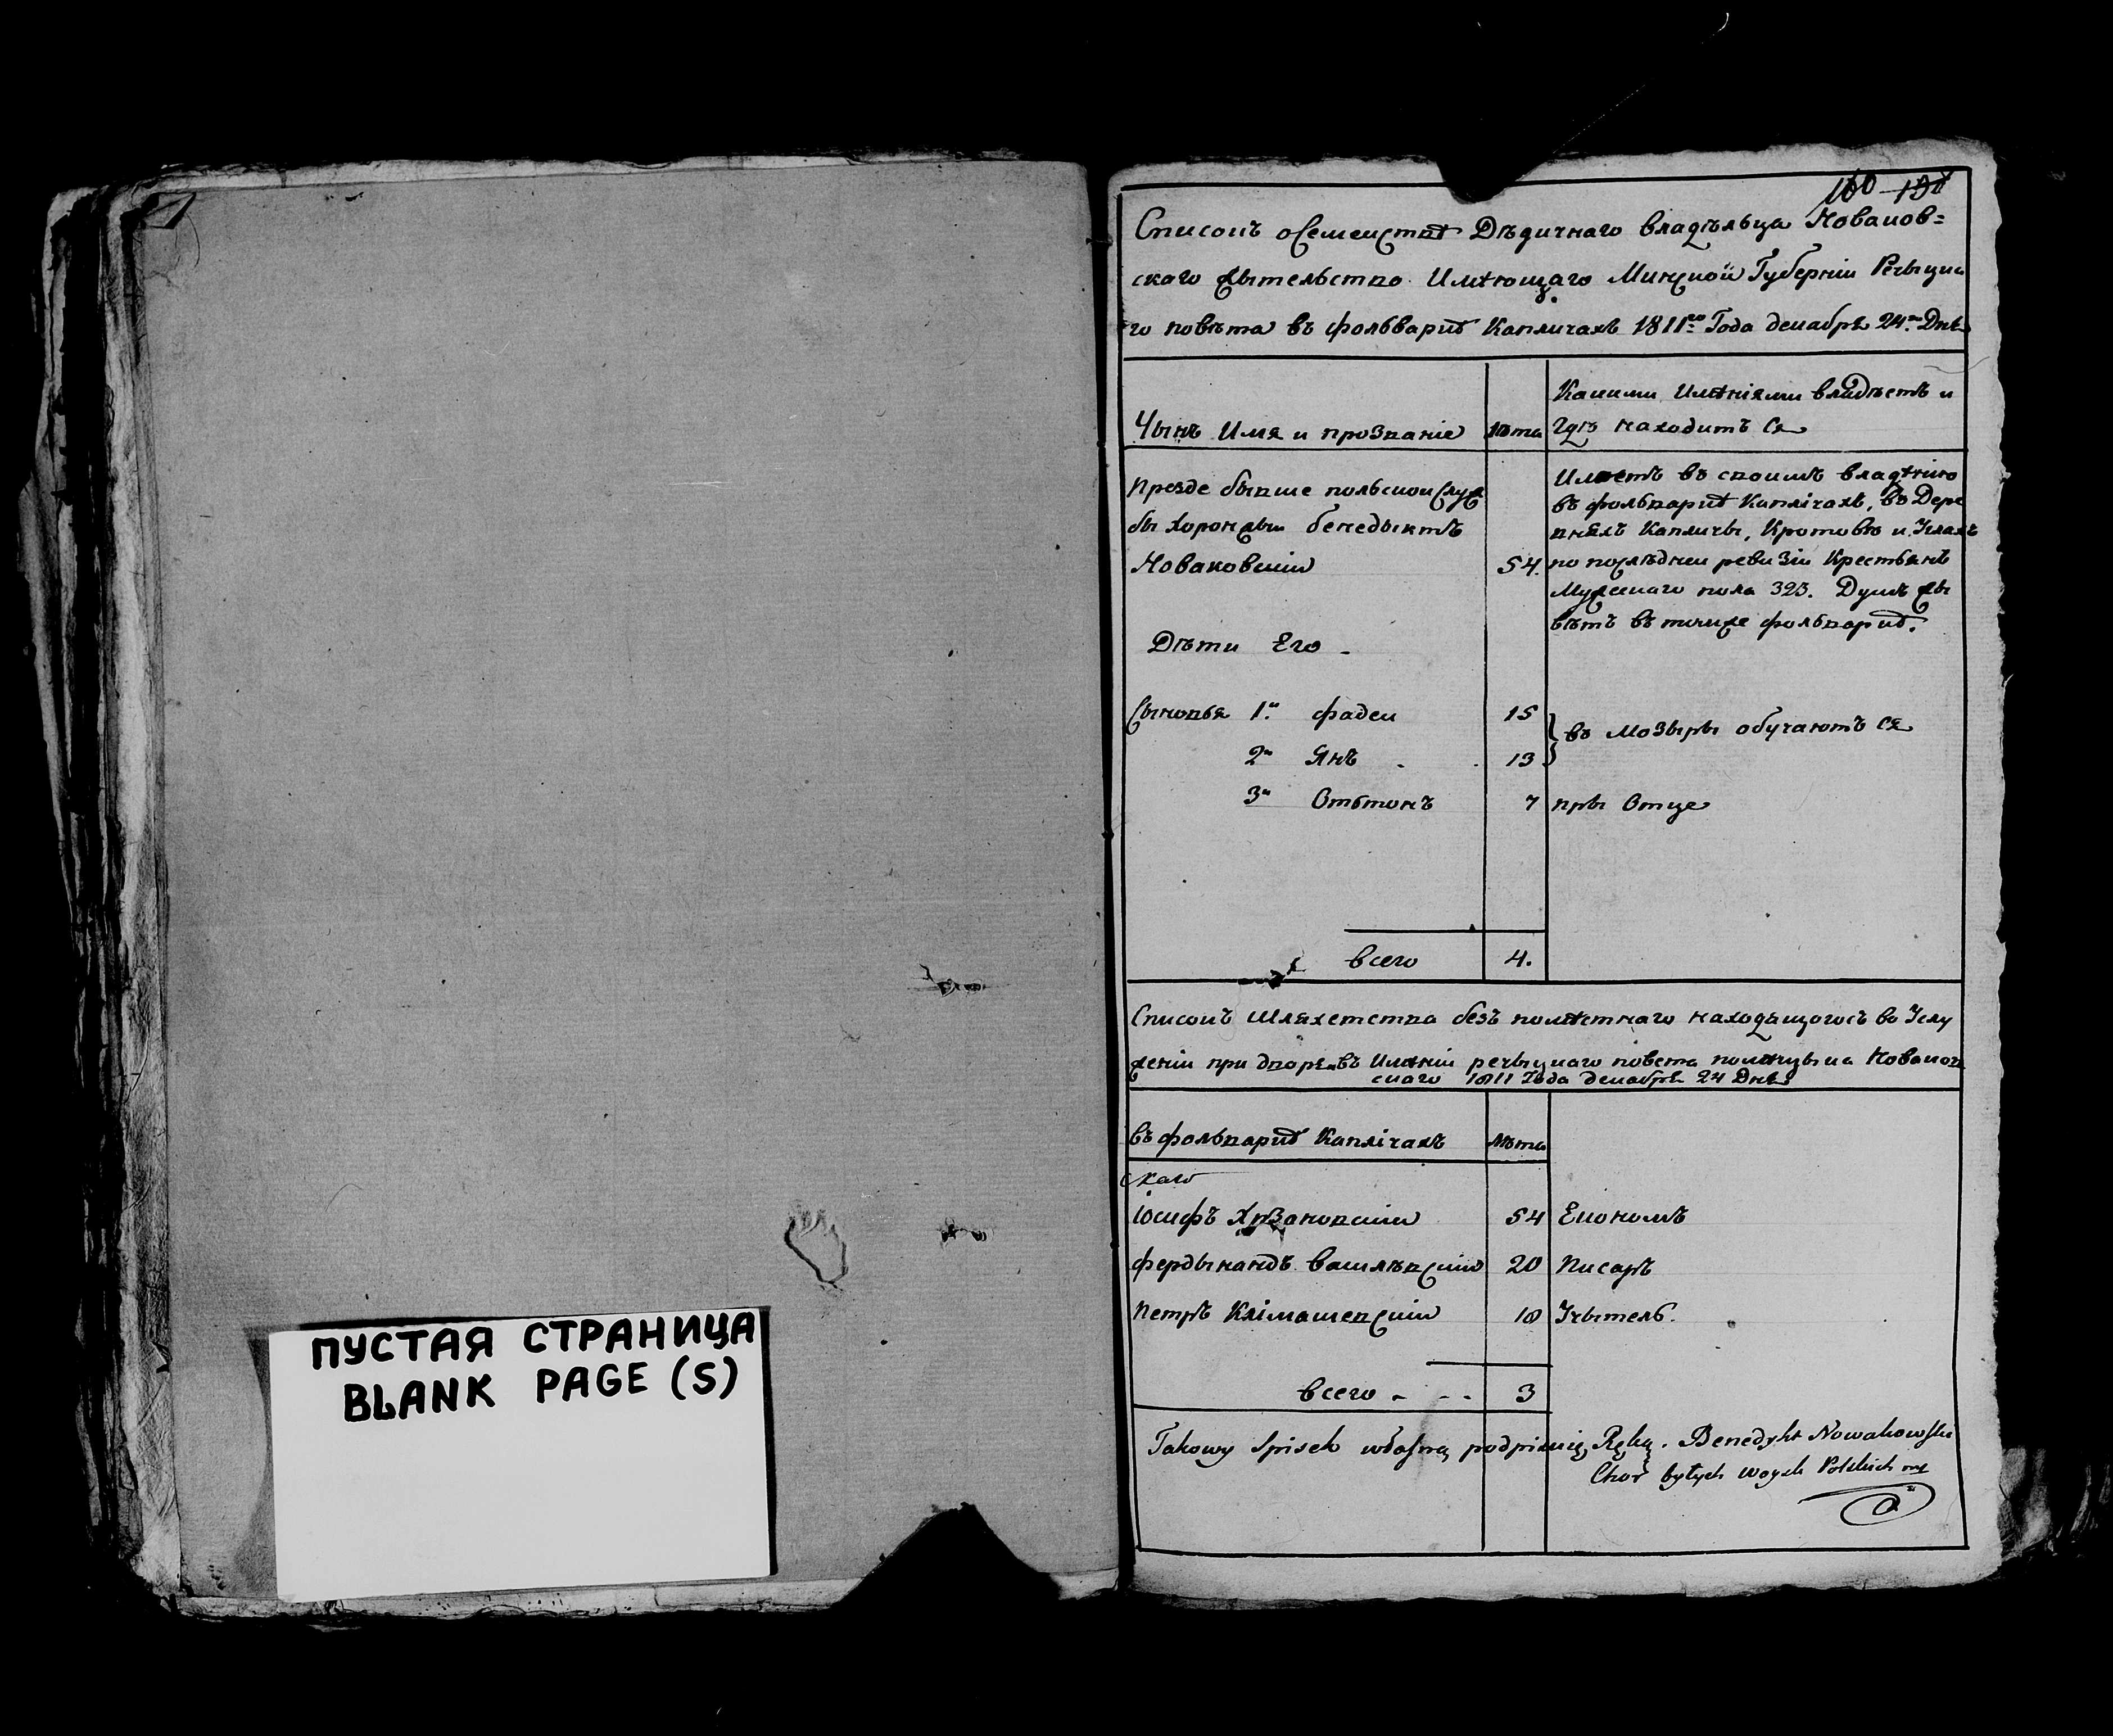 160
Списокъ о семействѣ Дѣдичнаго владѣльца Новаков=
скаго жытельство Имѣющаго Минской Губерніи Речыцка
го повѣта въ фольваркѣ Капличахъ 1811го Года декабрѣ 24го Днѣ
Чынъ Имя и прозваніе
лѣта
Какими Имѣніями владѣетъ и
Гдѣ находитъ ся
Презде бывше польскои служ
бы хоронжы бенедыктъ
Новаковскій
54.
Имѣетъ въ своимъ владѣнію
въ фольваркѣ Каплічахъ, въ Дере
вняхъ Капличы, Кротовѣ и
по послѣдней ревизіи Крестьянъ
Мужескаго пола 323. Душъ жы
вѣтъ въ томже фольваркѣ.
Дѣти Его -
Сыновья 1й фадеи 15
2й Янъ - 13
} въ Мозыры обучаютъ ся
3й Отътонъ 7 пры Отце
всего 4.
Списокъ Шляхетства безъ помѣстнаго находящогось во Услу
женіи при дворѣ въ Имѣніи речыцкаго повета помѣщыка Новаков
скаго 1811 Года декабрѣ 24 Днѣ
въ фольваркѣ Каплічахъ
лѣта
скаго
Іосифъ Хрзановскій 54 Економъ
фердынандъ Василѣвскій 20 Писаръ
Петръ Клімашевскій 18 Учытель.
всего - - - 3
Takowy Spisek własną podpisuię Ręką. Benedykt Nowakowski
Chor byłych woysk Polskich
ПУСТАЯ СТРАНИЦА
BLANK PAGE (S)